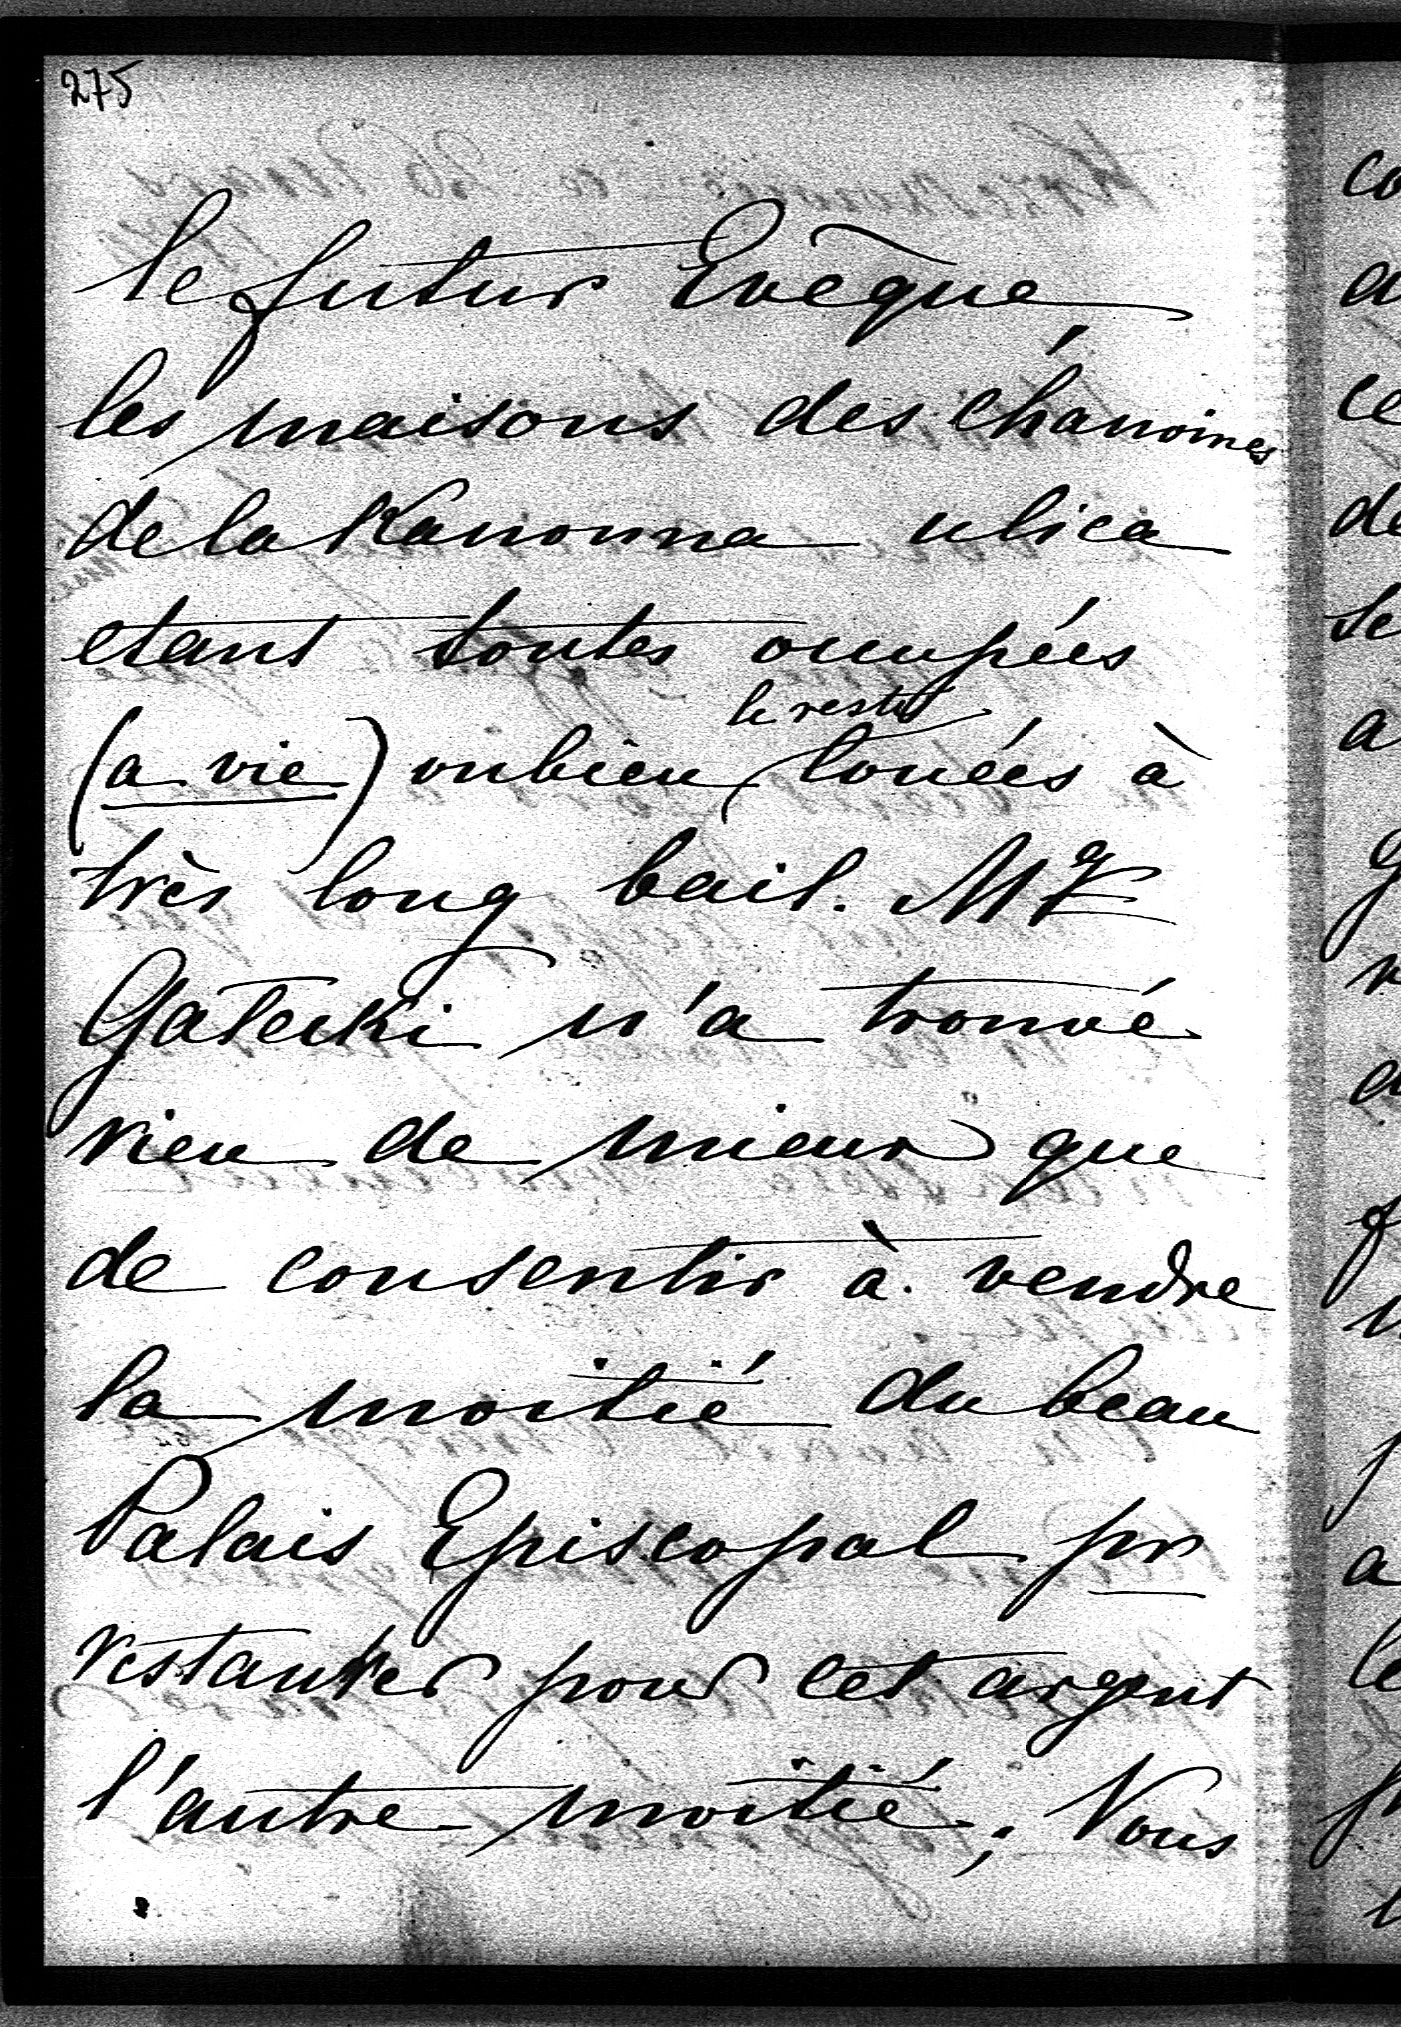 275
le futur Evêque
les maisons des chanoines
de la Kanonna ulica
etant toutes occupées
le reste
(a vie) ou bien louées à
très long bail. Mgr
Gałecki n'a trouvé
rien de mieux que
de consentir à vendre
la moitié du beau
Palais Episcopal pr
restaurer pour cet argent
l'autre moitié; Vous